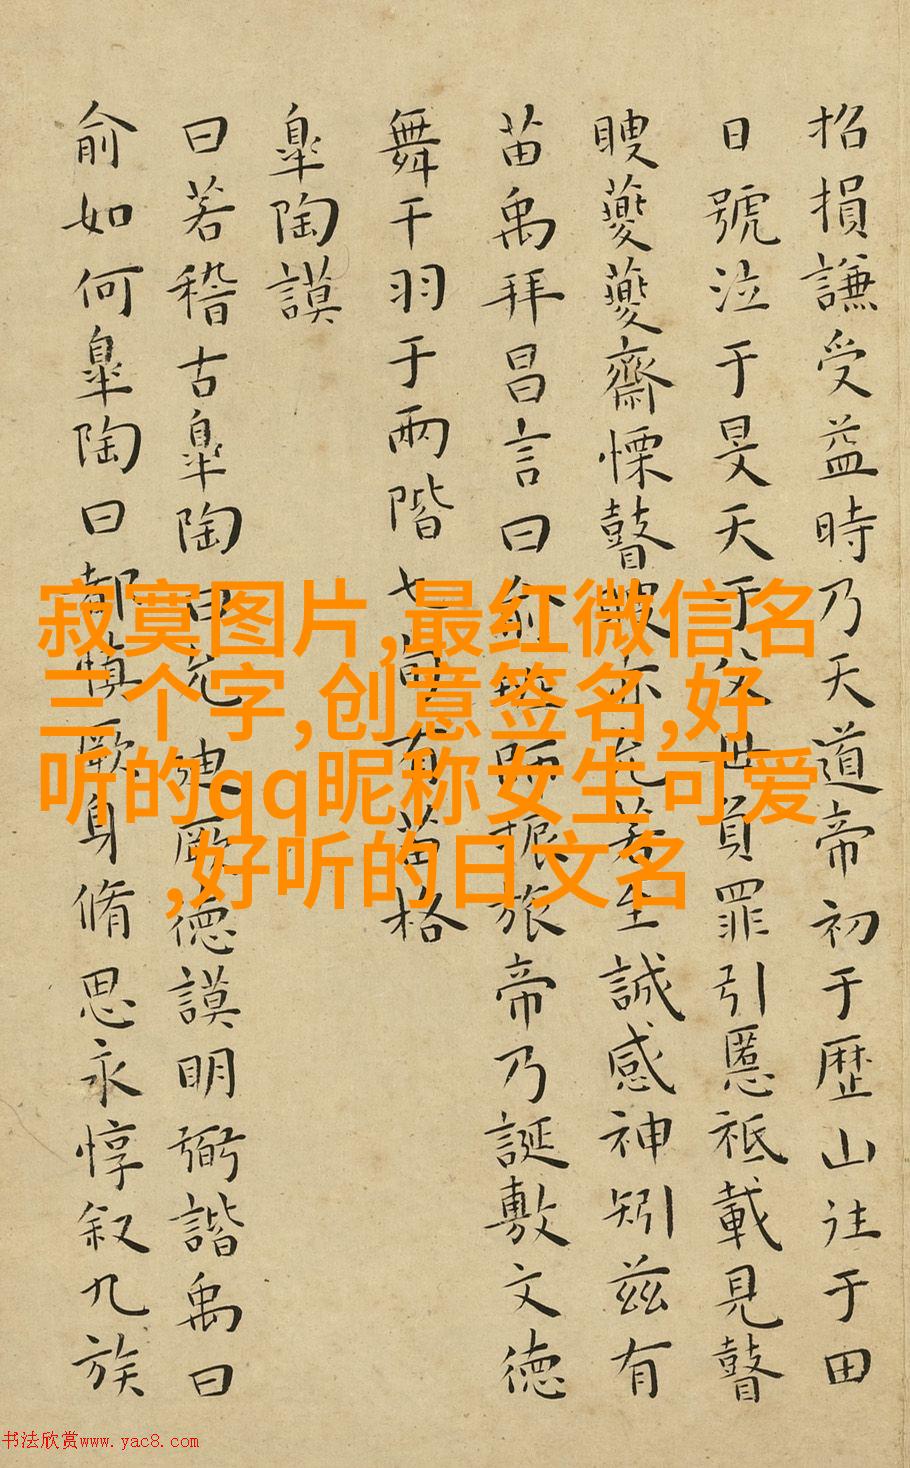 招損謙受益時乃天道帝初于歷山往于田
日號泣于旻天于父母負罪引慝祗載見瞽
瞍夔夔齋慄瞽瞍亦允若至誠感神矧茲有
苗禹拜昌言曰俞班師振旅帝乃誕敷文德
舞干羽于兩階七旬有苗格
皐陶謨
曰若稽古皐陶曰允迪厥德謨明弼諧禹曰
俞如何皐陶曰都慎厥身脩思永惇叙九族
寂寞图片,最红微信名
三个字,创意签名,好
听的qq昵称女生可爱
,好听的日文名
书法欣赏www.yac8.com